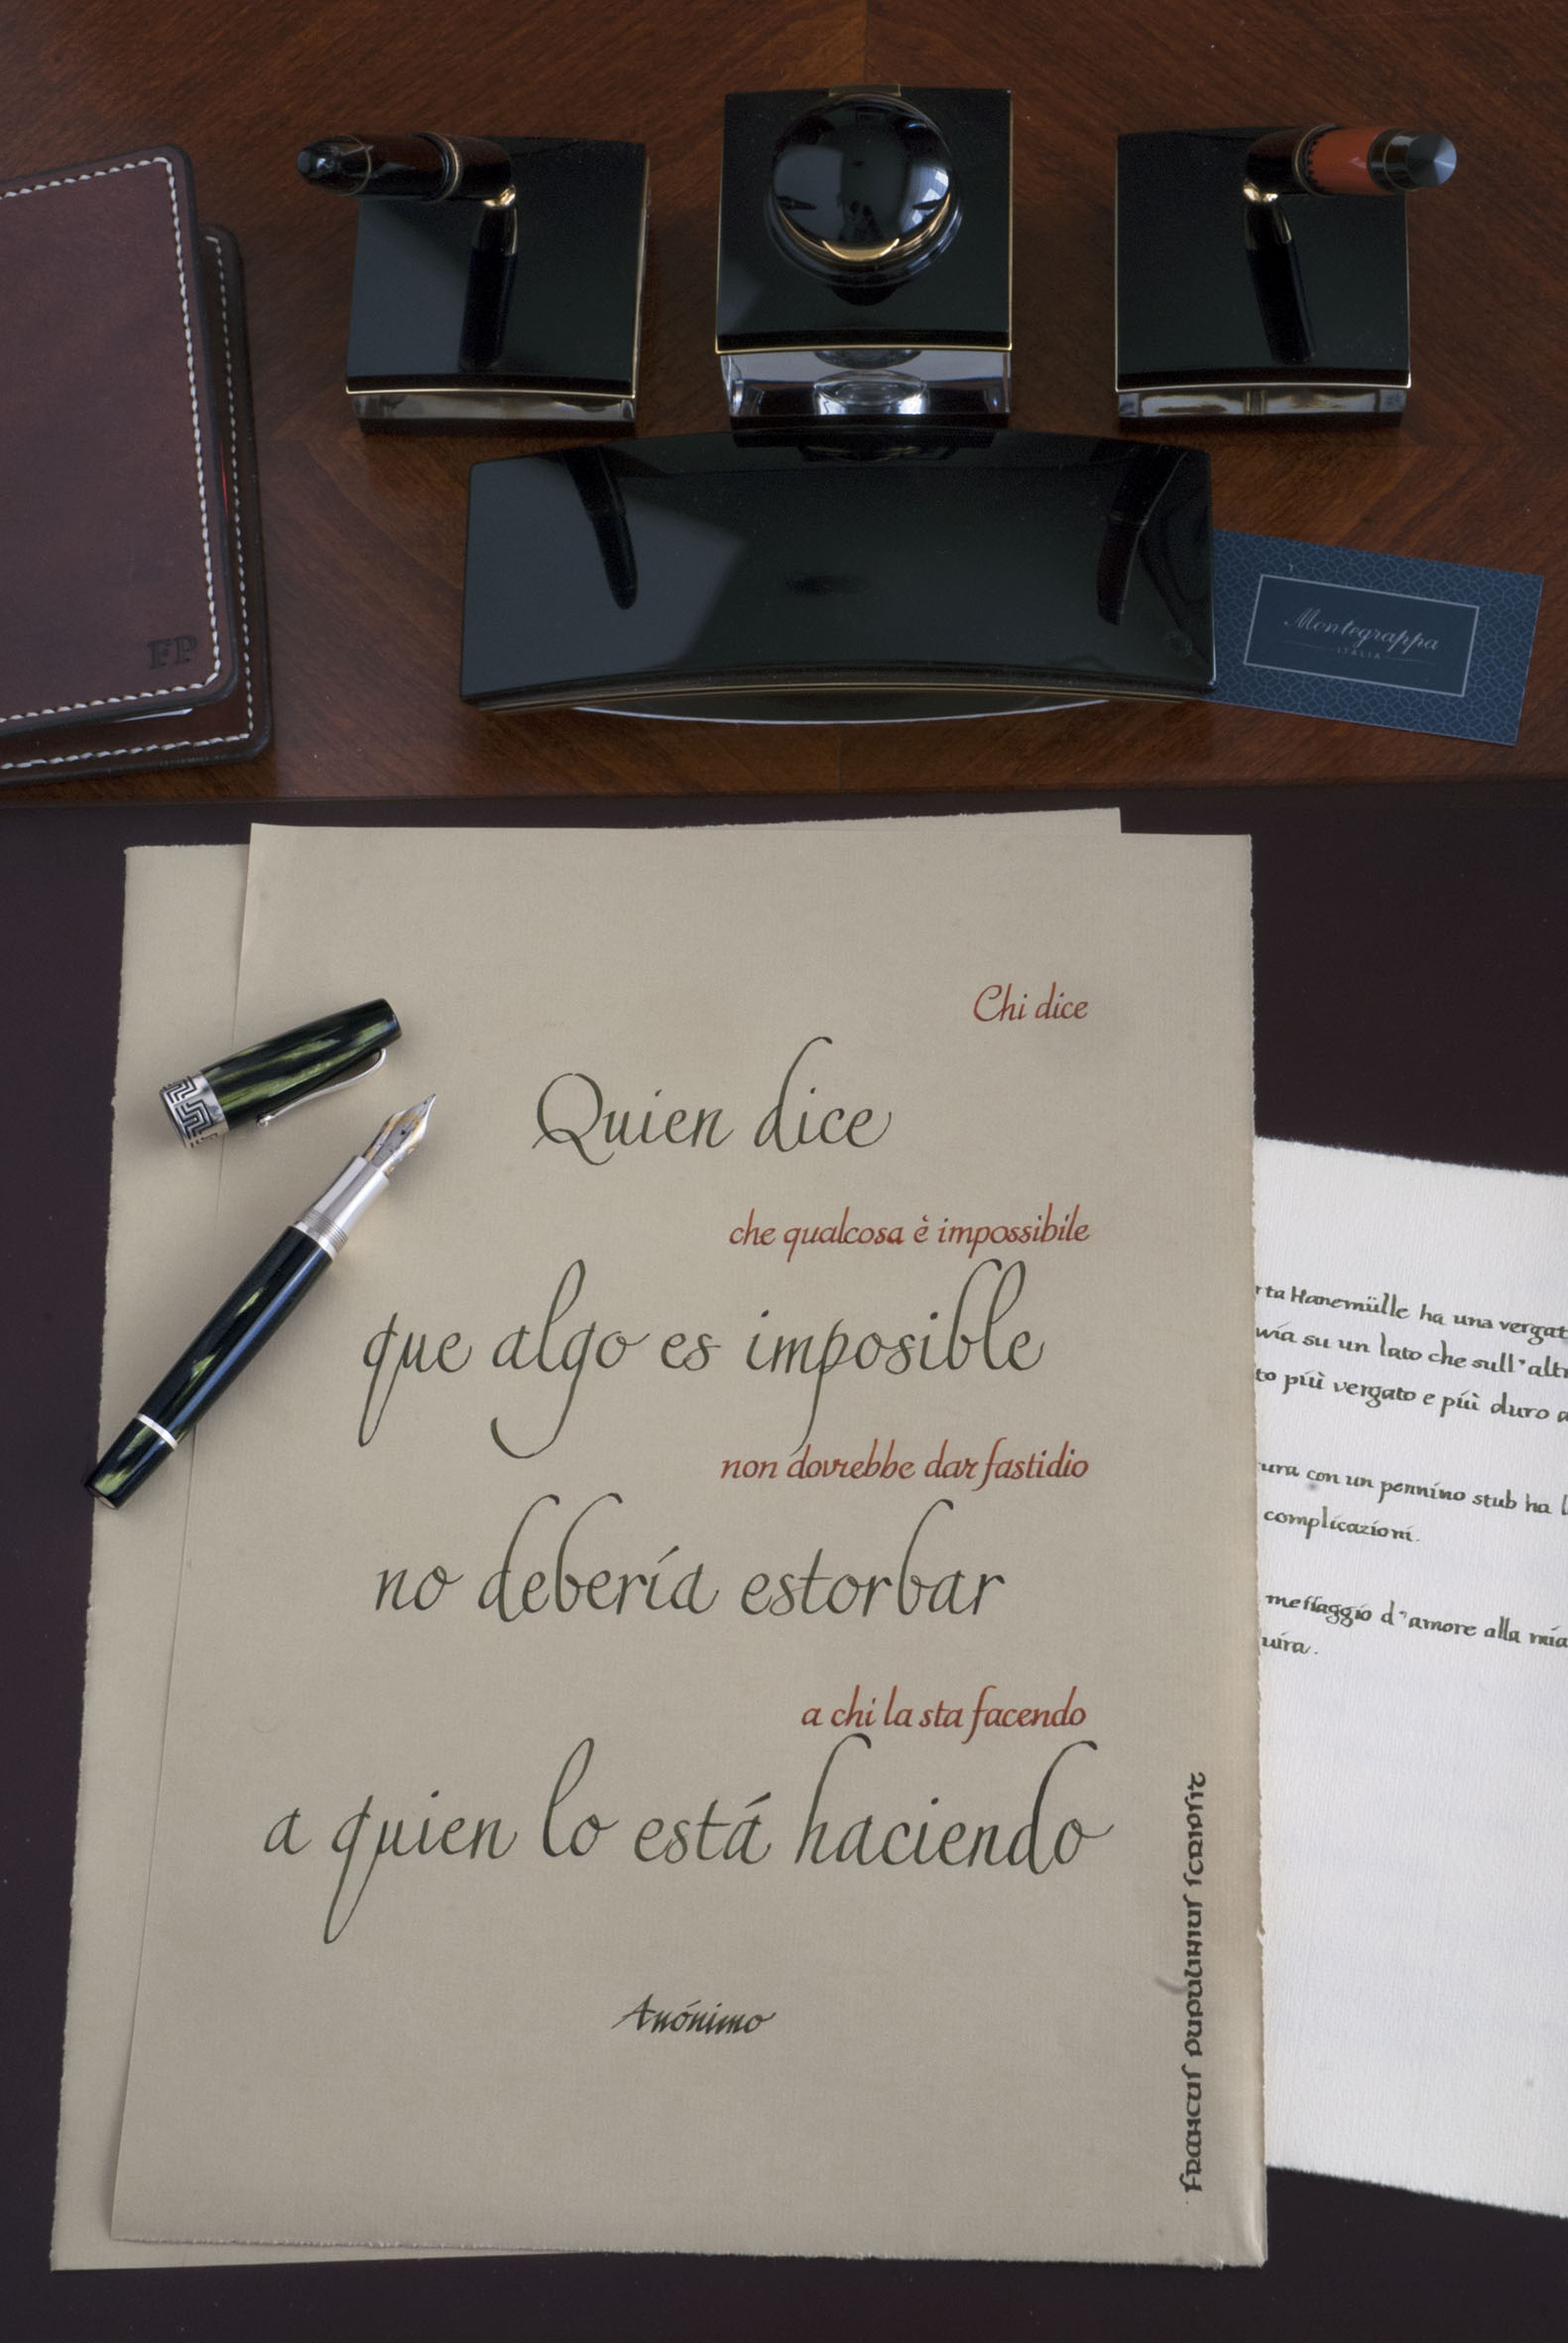 FP
Montegrappa
ITALIA
Chi dice
Quien dice
che qualcosa è impossibile
que algo es imposible
non dovrebbe dar fastidio
no debería estorbar
a chi la sta facendo
a quien lo está haciendo
Anónimo
Francus pupulinius scripsit
rta Hanemülle ha una vergat
su un lato che sull'altr
to più vergato e più duro a
ura con un pennino stub ha l
complicazioni.
messaggio d'amore alla mia